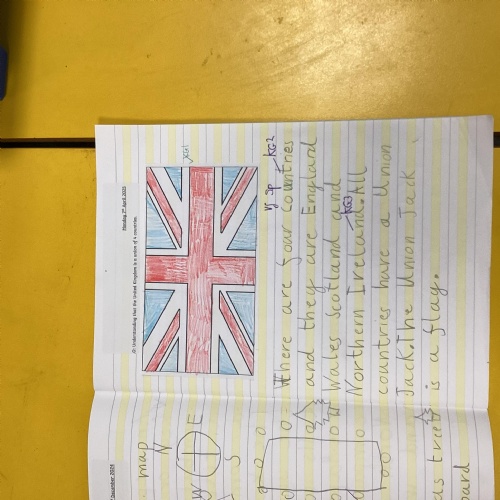 Monday 3rd April 2023
LO: Understanding that the United Kingdom is a union of 4 countries.
KG1
VJ Sp KG2
There are four Countries
and they are England
Wales Scotland and
KG3
Northern Ireland. All
countries have a Union
Jack. The Union Jack
is a flag.
December 2023
map
N
W E
S